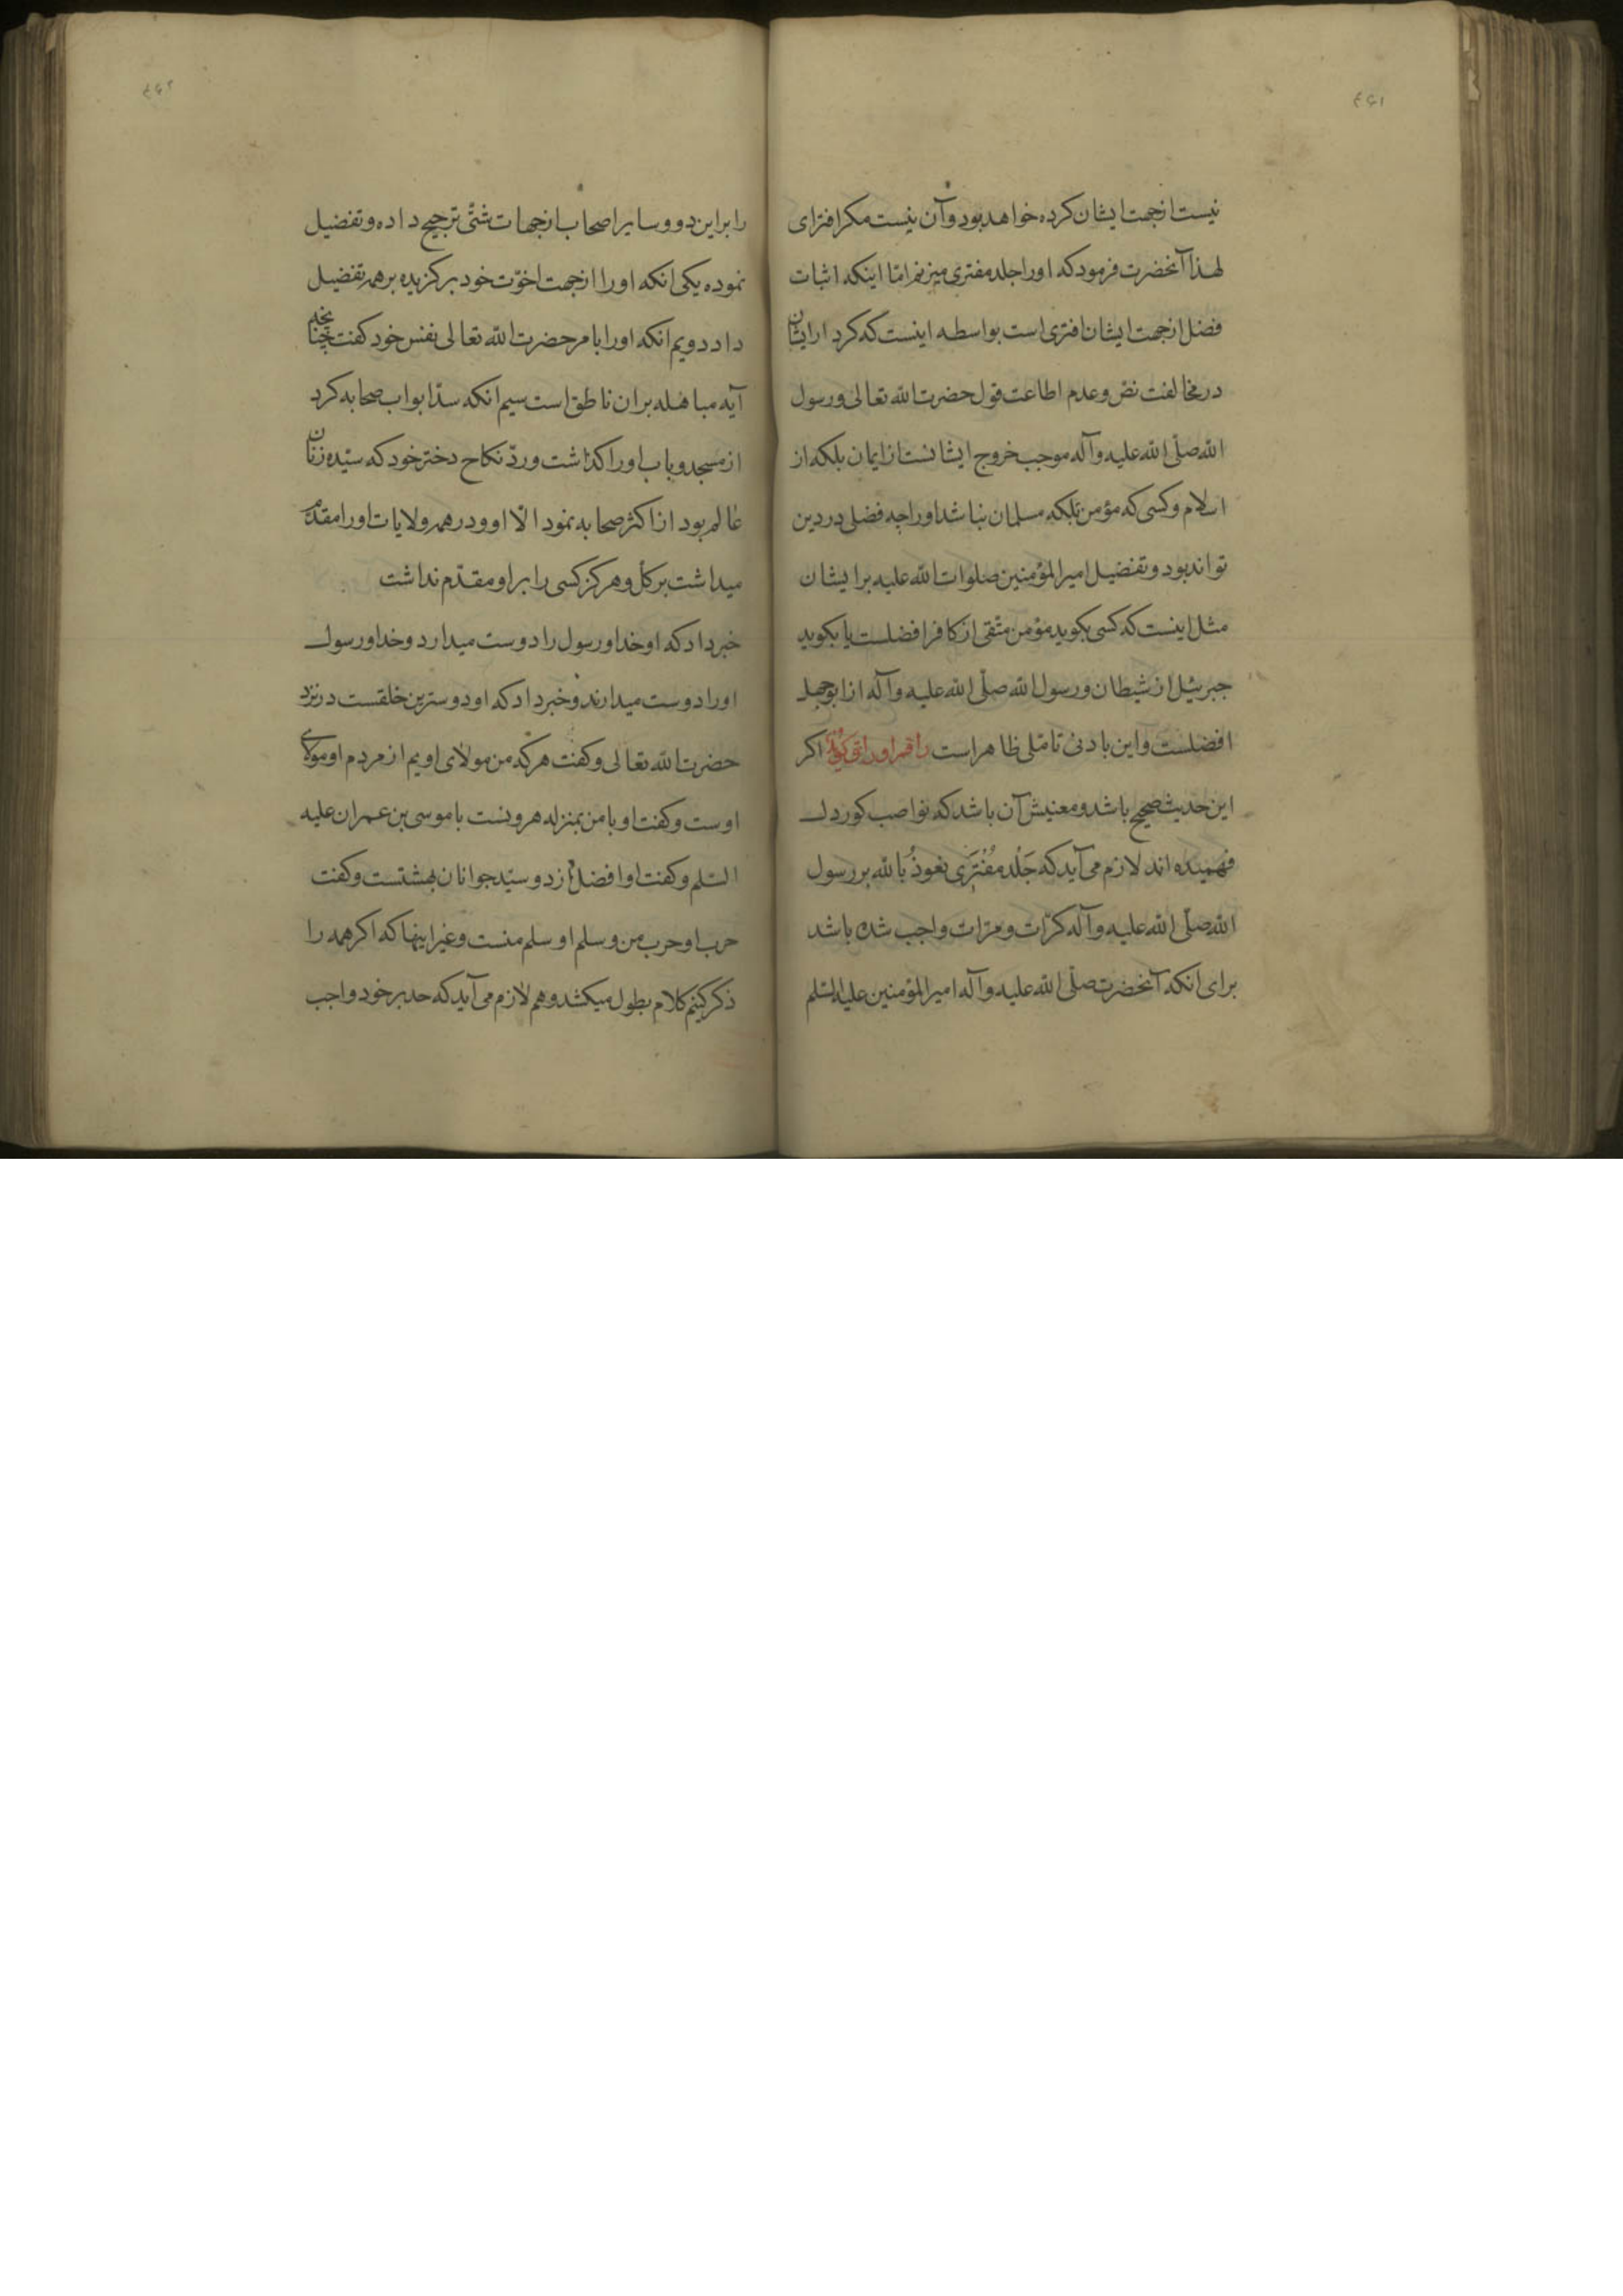 ۴۶۱
نیست ازجهت ایشان کرده خواهد بود وآن نیست مکر افترای
لهذا آنحضرت فرمود که اورا جلد مفتری میزنم امّا اینکه اثبات
فضل ازجهت ایشان افتری است بواسطه اینست که کرد ارایشان
درمخالفت نصّ وعدم اطاعت قول حضرت الله تعالی ورسول
الله صلّی الله علیه وآله موجب خروج ایشانست از ایمان بلکه از
اسلام وکسی که مؤمن بلکه مسلمان نباشد اورا چه فضلی در دین
تواند بود وتفضیل امیرالمؤمنین صلوات الله علیه برایشان
مثل اینست که کسی بکوید مؤمن متّقی از کافر افضلست یا بکوید
جبرئیل از شیطان ورسول الله صلّی الله علیه وآله از ابوجهل
افضلست واین بادنی تامّلی ظاهر است راقم اوراق کوید اکر
این حدیث صحیح باشد ومعنیش آن باشد که نواصب کوردل
فهمیده اند لازم می آید که جَلْد مُفْتَرَی نعوذُ بالله بر رسول
الله صلّی الله علیه وآله کرّات ومرّات واجب شده باشد
برای انکه آنحضرت صلّی الله علیه وآله امیرالمؤمنین علیه السّلم
۴۶۲
را براین دو وسایر اصحاب ازجهات شتّی ترجیح داده وتفضیل
نموده یکی انکه اورا ازجهت اخوّت خود برکزیده برهمه تفضیل
داد دویم انکه اورا بامر حضرت الله تعالی نفس خود کفت چنانچه
آیه مباهله بران ناطق است سیم انکه سدّ ابواب صحابه کرد
از مسجد وباب اورا کذاشت وردّ نکاح دختر خود که سیّده زنان
عالم بود از اکثر صحابه نمود الّا او ودر همه ولایات اورا مقدّم
میداشت برکل وهرکز کسی را براو مقدّم نداشت
خبر داد که او خدا ورسول را دوست میدارد وخدا ورسول
اورا دوست میدارند وخبر داد که او دوسترین خلقست در نزد
حضرت الله تعالی وکفت هرکه من مولای اویم از مردم او مولای
اوست وکفت او بامن بمنزله هرونست با موسی بن عمران علیه
السّلم وکفت او افضل از دو سیّد جوانان بهشتست وکفت
حرب او حرب من وسلم او سلم منست وغیر اینها که اکر همه را
ذکر کنیم کلام بطول میکشد وهم لازم می آید که حد بر خود واجب